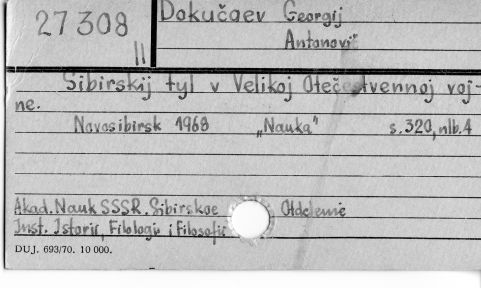 27308
II
Dokučaev Georgij
Antonovič
Sibirskij tyl v Velikoj Otečestvennoj voj-
ne.
Novosibirsk 1968 „Nauka" s. 320, nlb. 4
Akad. Nauk SSSR. Sibirskoe Otdelenie
Inst. Istorii, Filologii i Filosofii
DUJ. 693/70. 10 000.